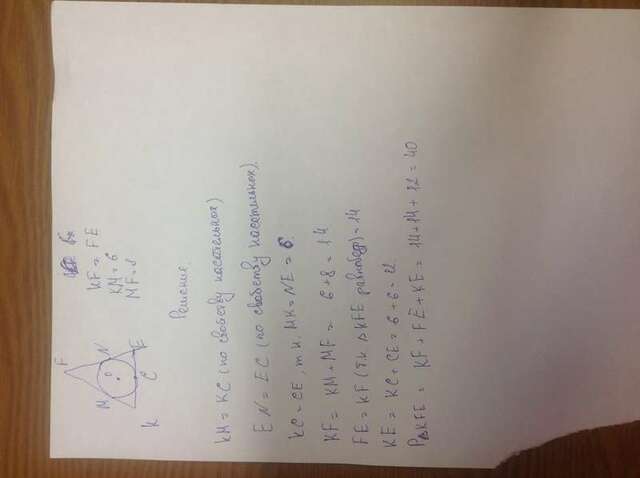 F
M
N
O
E
C
K
KF = FE
KM = 6
MF = 8
Решение.
KM = KC (по свойству касательных)
EN = EC (по свойству касательных).
KC = CE, т.к. MK = NE = 6.
KF = KM + MF = 6 + 8 = 14
FE = KF (т.к. △KFE равнобедр) = 14
KE = KC + CE = 6 + 6 = 12
P△KFE = KF + FE + KE = 14 + 14 + 12 = 40